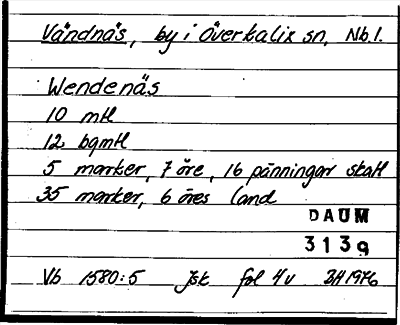 Vändnäs, by i Överkalix sn, Nb.l.
Wendenäs
10 mtl
12 bqmtl
5 marker, 7 öre, 16 pänningar skatt
35 marker, 6 öres land
DAUM
3139
Vb 1580:5 Jsk fol 4v BH 1976